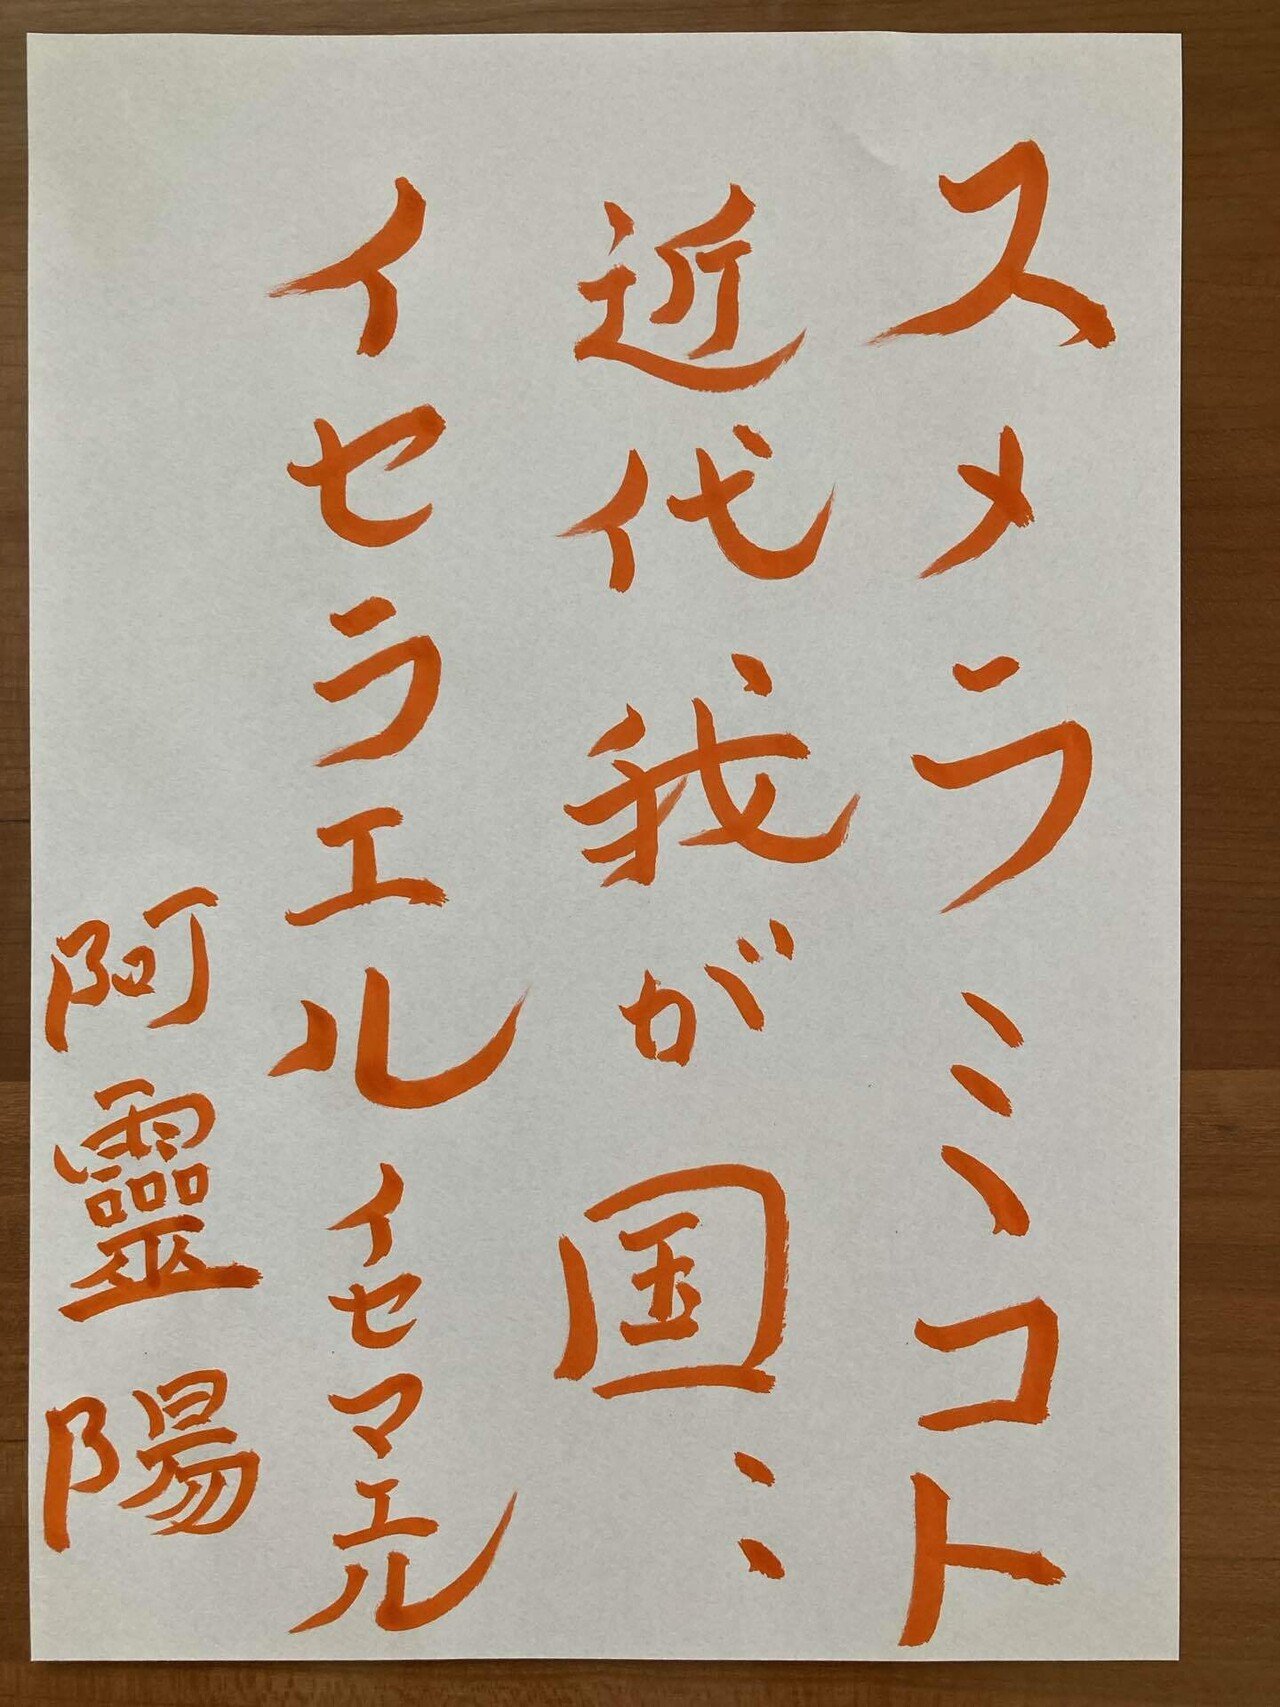 スメラミコト
近代我が国、、
イセラエルイセマエル
阿靈陽